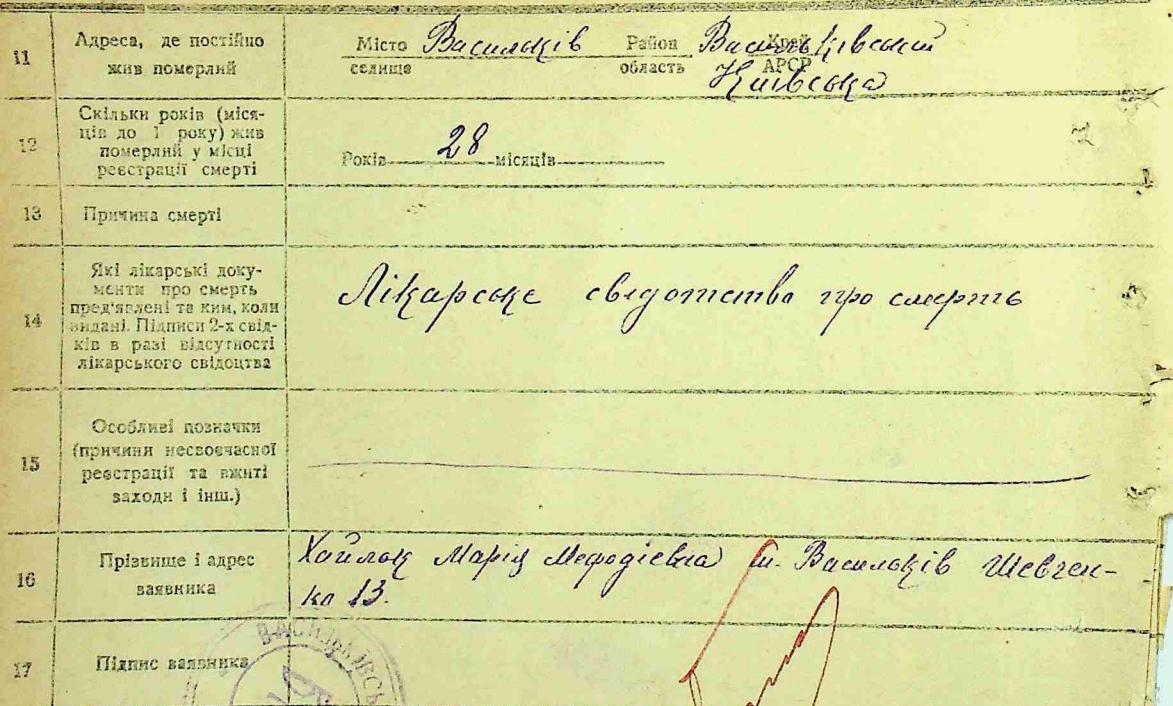 11 Адреса, де постійно
жив померлий
Місто Васильків Район Васильківський Край
селище область Київська АРСР
12 Скільки років (міся-
ців до 1 року) жив
померлий у місці
реєстрації смерті
Років 28 місяців
13 Причина смерті
14 Які лікарські доку-
менти про смерть
пред'явлені та ким, коли
видані. Підписи 2-х свід-
ків в разі відсутності
лікарського свідоцтва
Лікарське свідотство про смерть
15 Особливі позначки
(причини несвоєчасної
реєстрації та вжиті
заходи і інш.)
16 Прізвище і адрес
заявника
Хайлок Марія Мефодієвна м. Васильків Шевчен-
ка 13.
17 Підпис заявника